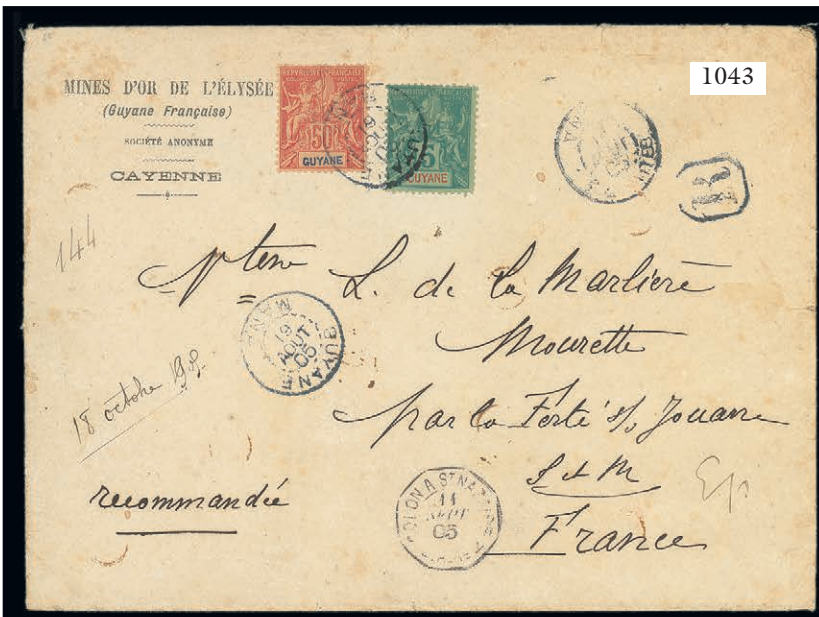 1043
MINES D'OR DE L'ÉLYSÉE
(Guyane Française)
SOCIÉTÉ ANONYME
CAYENNE
RÉPUBLIQUE FRANÇAISE
COLONIES POSTES
50
GUYANE
RÉPUBLIQUE FRANÇAISE
5
GUYANE
R
144
L. de la Marlière
Mourette
par la Ferté s/s Jouarre
S & M
France
MANA
19
AOUT
05
GUYANE
18 octobre 1905
recommandée
COLON A ST NAZAIRE
11
SEPT
05